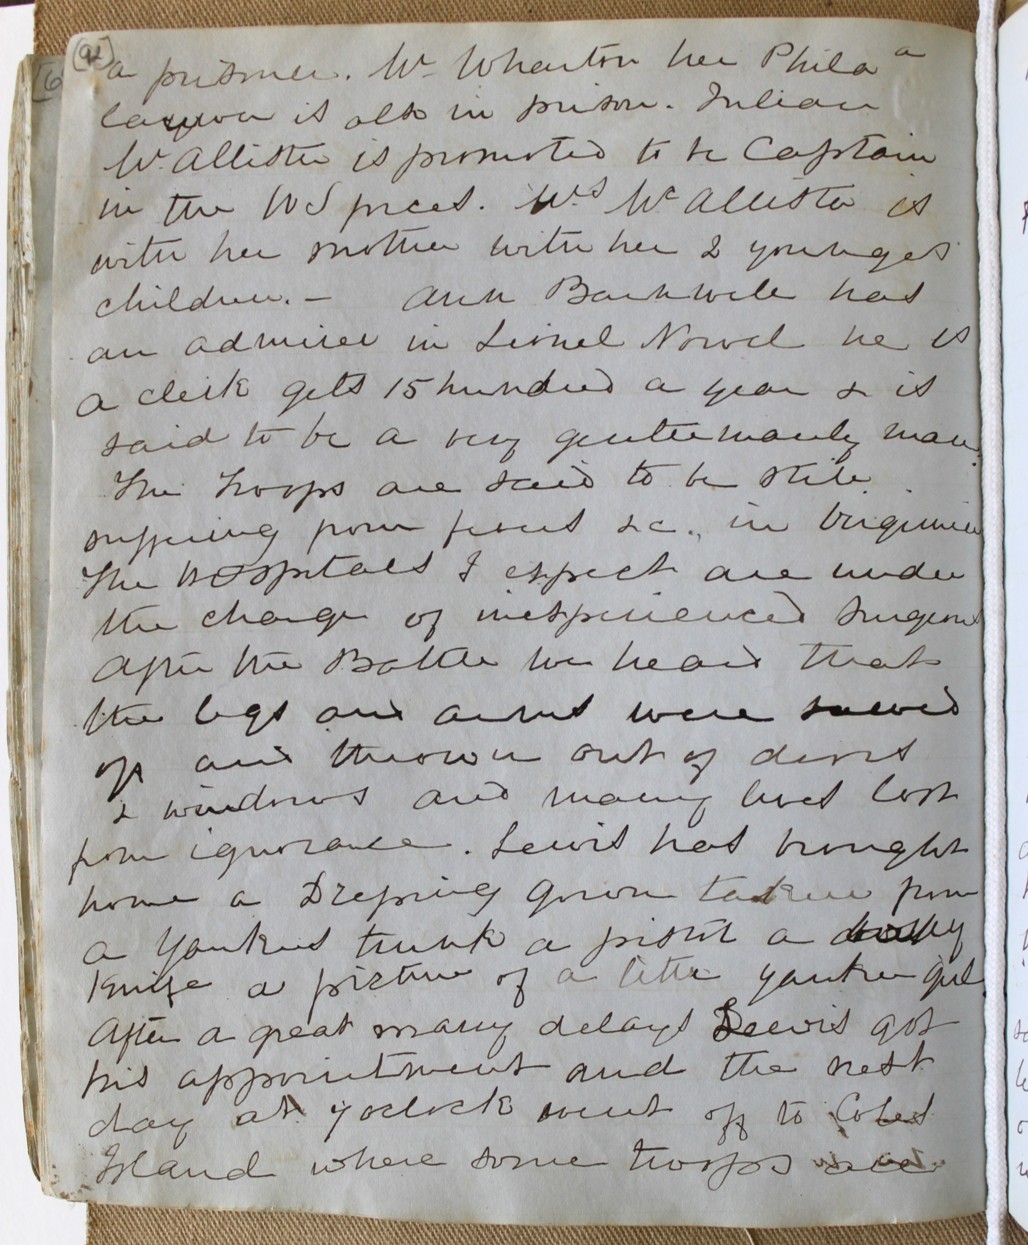 (94)
a prisoner. Mr Wharton her Phila a
lawyer is also in prison. Julian
Mc Allister is promoted to be Captain
in the US forces. Mrs Mc Allister is
with her mother with her 2 youngest
children. – Ann Barnwell has
an admirer in Lionel he is
a clerk gets 15 hundred a year & is
said to be a very gentlemanly man.
The Troops are said to be still
suffering from fevers &c., in Virginia
The Hospitals I expect are under
the charge of inexperienced surgeons
After the Battle we heard that
the legs and arms were sawed
off and thrown out of doors
& windows and many lives lost
from ignorance. Lewis has brought
home a Dressing gown taken from
a Yankees trunk a pistol a
knife a picture of a little yankee girl
After a great many delays Lewis got
his appointment and the next
day at oclock went off to Coles
Island where some troops are